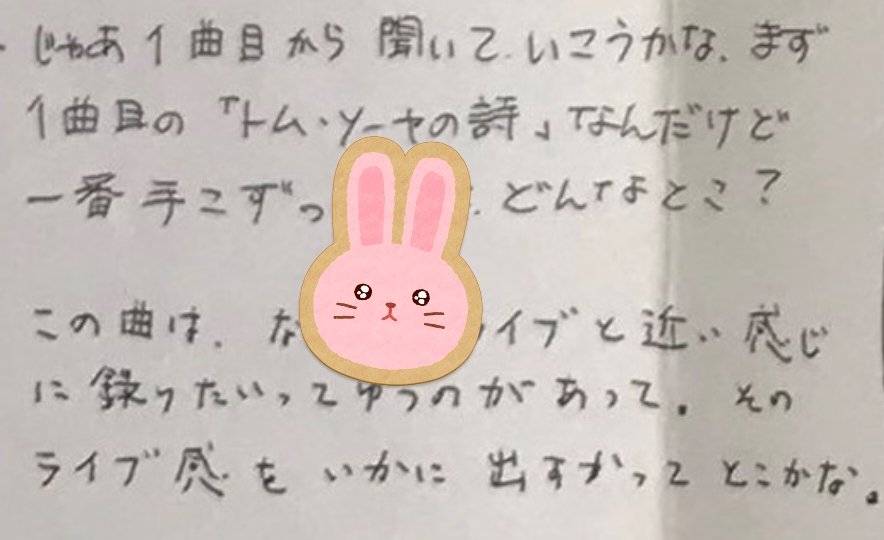 ・じゃあ1曲目から聞いて、いこうかな、まず
1曲目の「トム・ソーヤの詩」なんだけど
一番手こずっ 、どんなとこ?
この曲は、な イブと近い感じ
に録りたいってゆうのがあって。その
ライブ感をいかに出すかってとこかな。